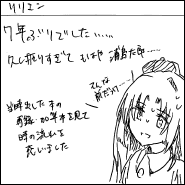 リリエン
7年ぶりでした……
久し振りすぎて もはや 浦島太郎……
そんな
前だっけ…
当時出した本の
再録、20年本を見て
時の流れを
感じました